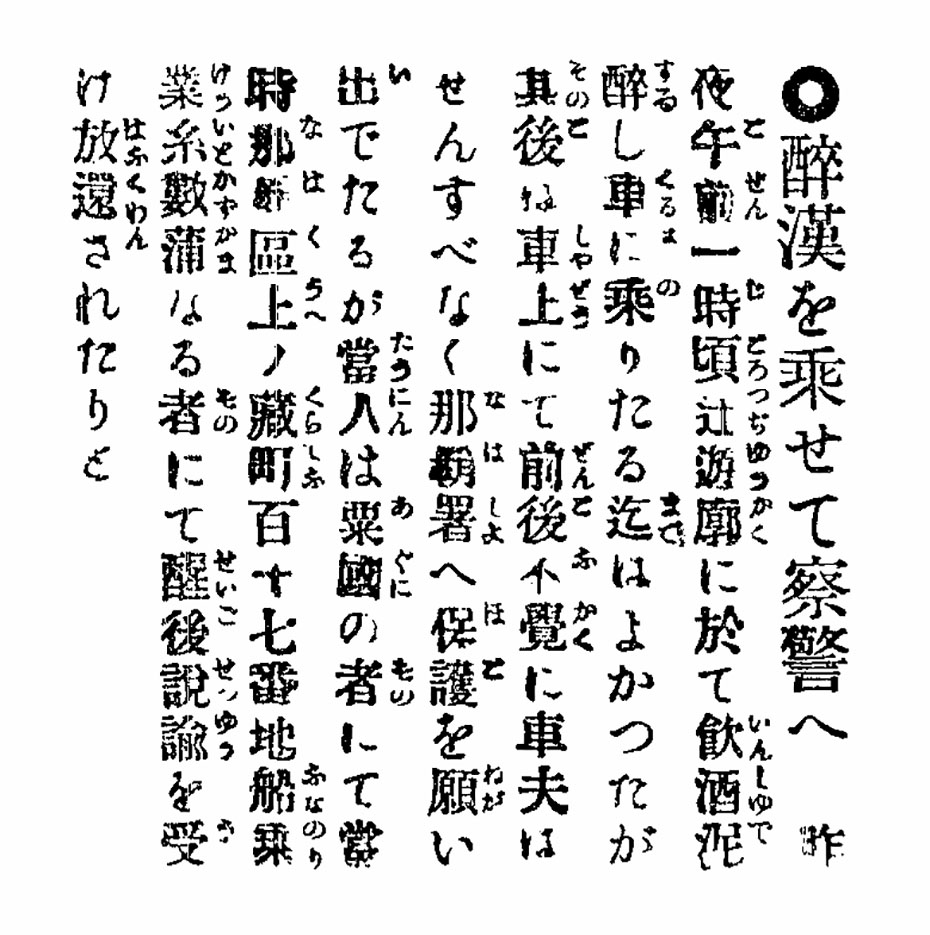 ◉醉漢を乘せて察警へ 昨
夜午前一時頃辻遊廓に於て飮酒泥
醉し車に乘りたる迄はよかつたが
其後は車上にて前後不覺に車夫は
せんすべなく那覇署へ保護を願い
出でたるが當人は粟國の者にて當
時那覇區上ノ藏町百十七番地船乘
業糸數蒲なる者にて醒後說諭を受
け放還されたりと